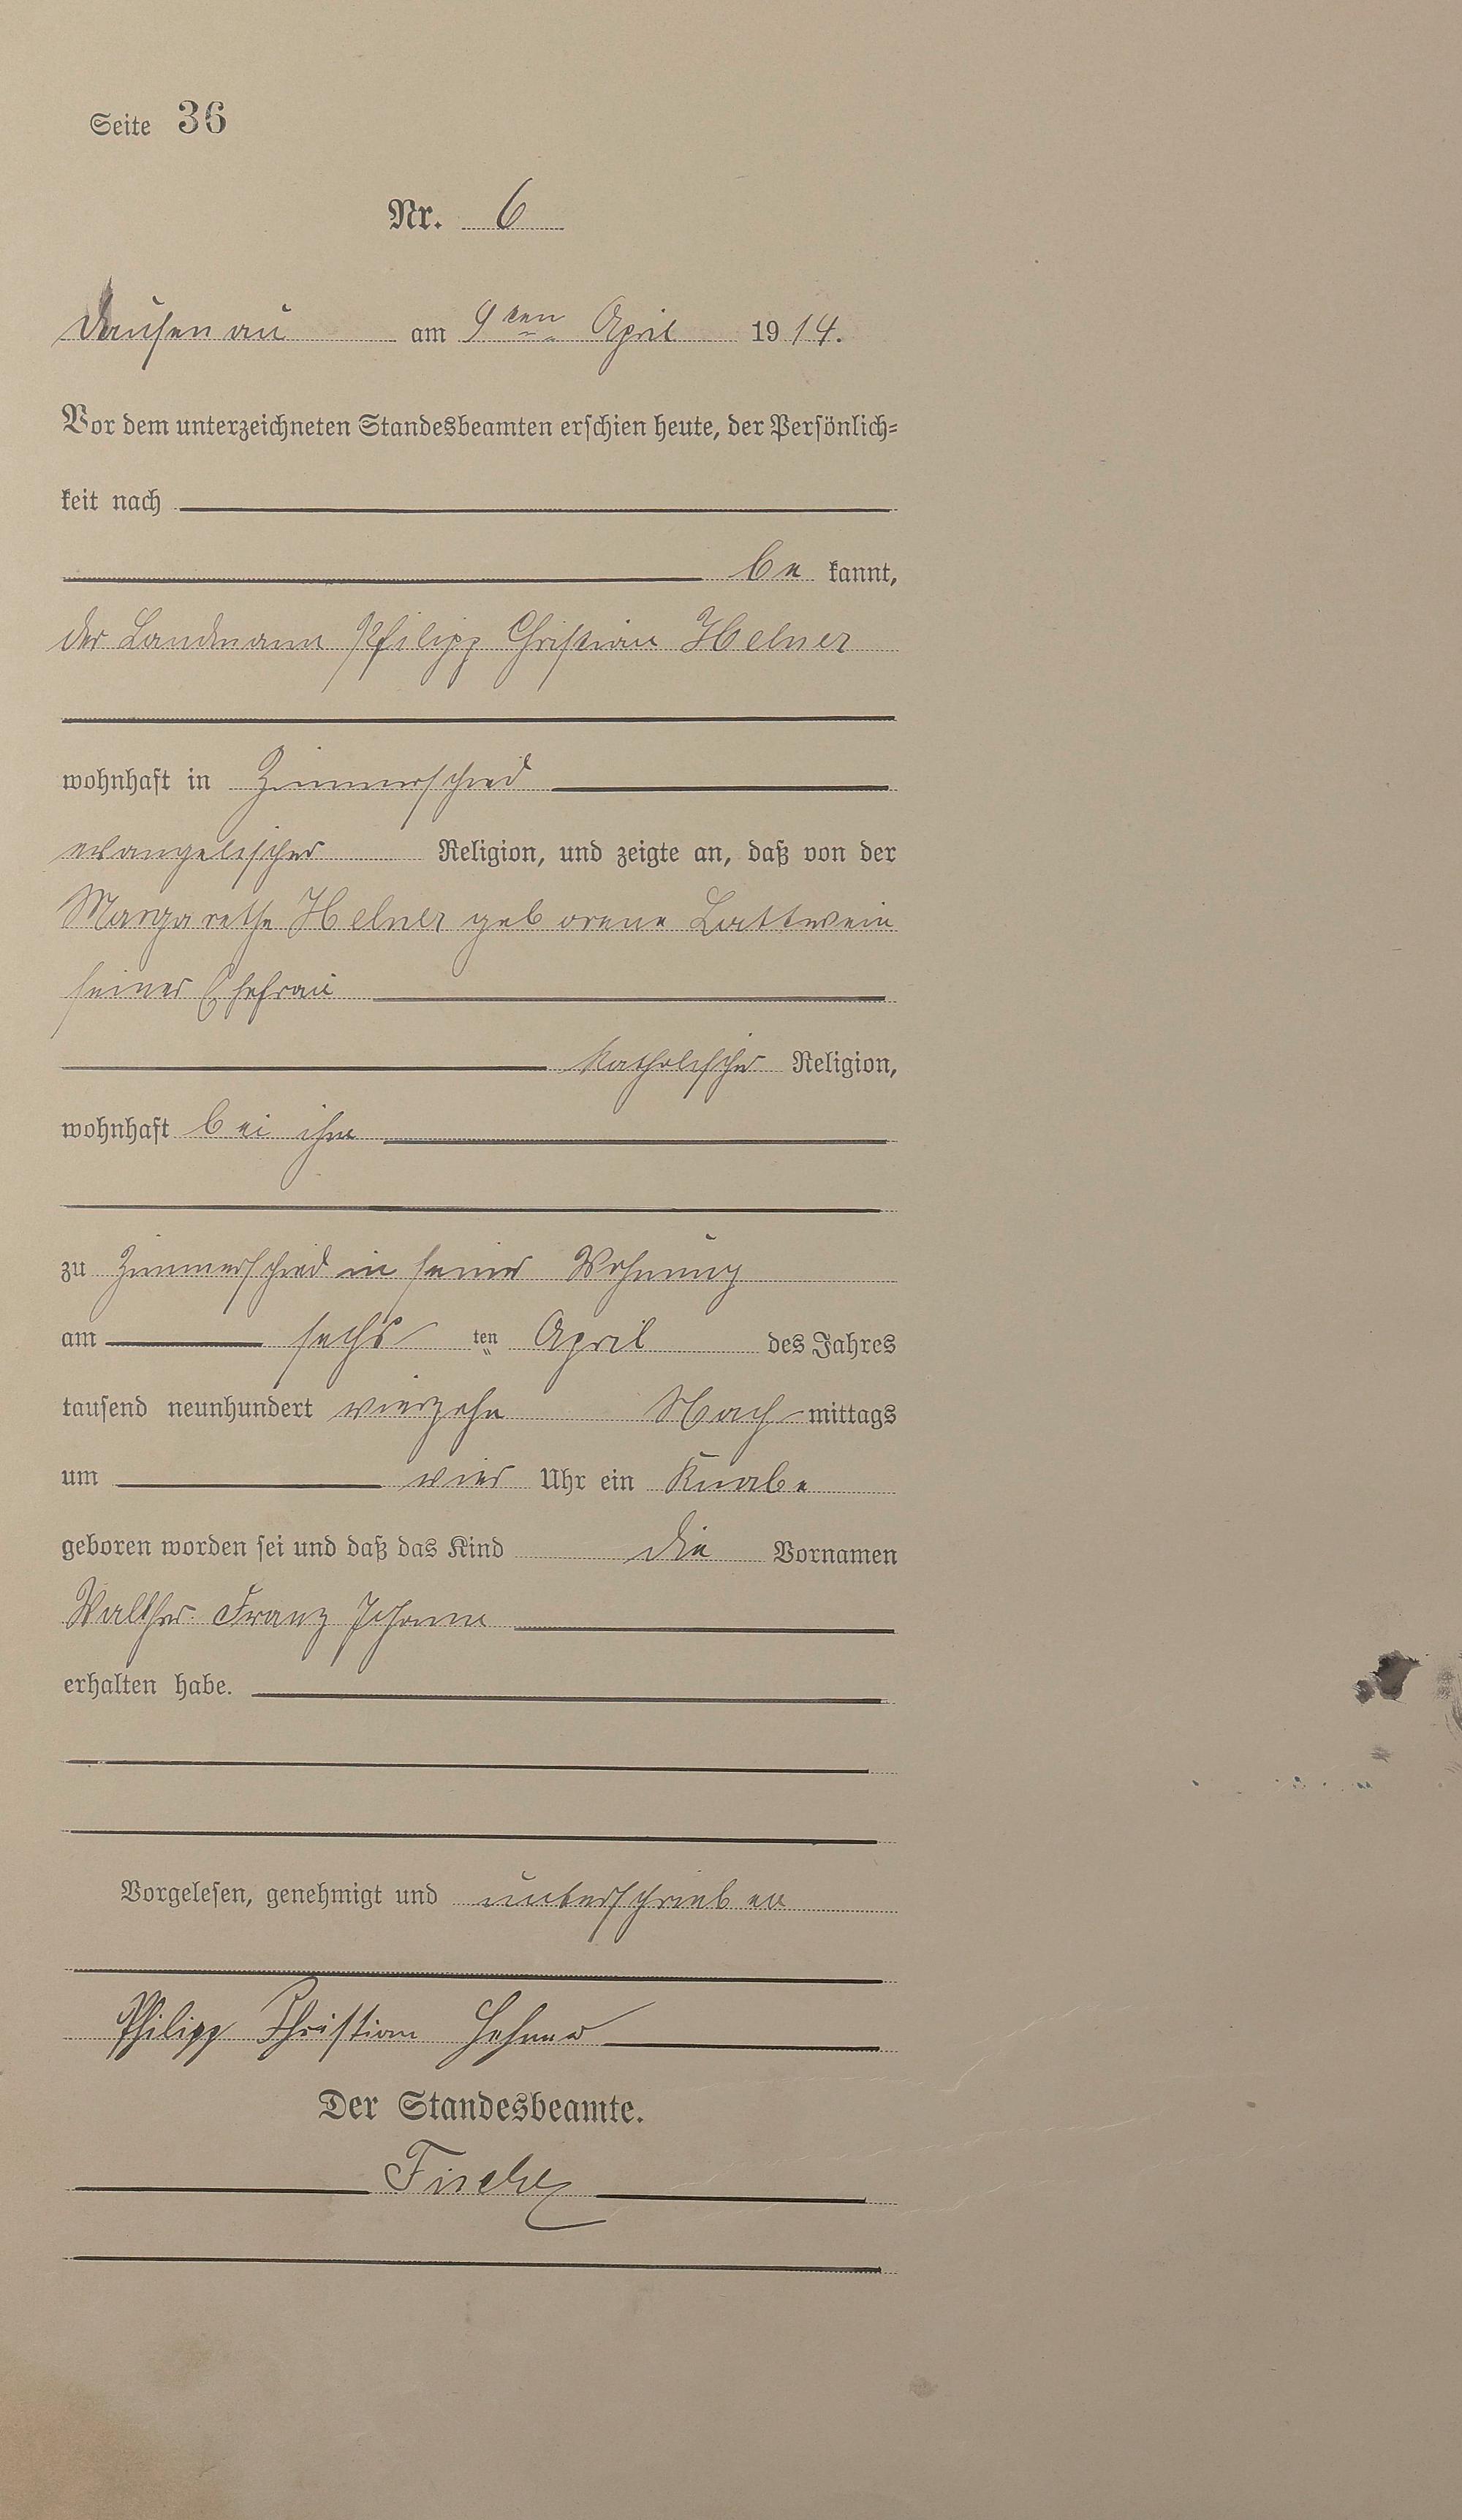 Seite 36
Nr. 6
Dausenau am 9ten April 1914.
Vor dem unterzeichneten Standesbeamten erschien heute, der Persönlich=
keit nach
be kannt,
der Landmann Philipp Christian
wohnhaft in Zimmerschied
evangelischer Religion, und zeigte an, daß von der
Margarethe geborene Lattwein
seiner Ehefrau
katholischer Religion,
wohnhaft bei ihm
zu Zimmerschied in seiner Wohnung
am sechs ten April des Jahres
tausend neunhundert vierzehn Nach mittags
um vier Uhr ein Knabe
geboren worden sei und daß das Kind die Vornamen
Walther Franz Johann
erhalten habe.
Vorgelesen, genehmigt und unterschrieben
Philipp Christian
Der Standesbeamte.